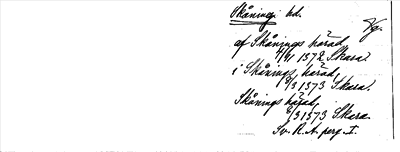 Skånings hd.
Vg.
af Skånings härad
4/41 1372 Skara.
i Skånings härad,
6/3 1373 Skara.
Skånings härad,
6/3 1373 Skara.
Sv. R. A. perg. I.